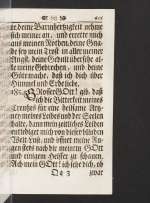 615
ne deine Barmhertzigkeit nehme
sich meiner an, und errette mich
aus meinen Nöthen, deine Gna-
de sey mein Trost in aller meiner
Angst, deine Gedult übersehe al-
le meine Gebrechen, und deine
Güte mache, daß ich dich über
Himmel und Erde liebe.
185. Grosser GOtt! gib, daß
ich die Bitterkeit meines
Creutzes für eine heilsame Artz-
ney meines Leibes und der Seelen
halte, dann mein zeitliches Leiden
entlediget mich von dieser
Welt-Lust, und öffnet meine Au-
gen stets nach dir meinem GOtt
und einigem Helffer zu schauen.
Ach mein GOtt! ich sehe dich, ob
Qq 3 zwar